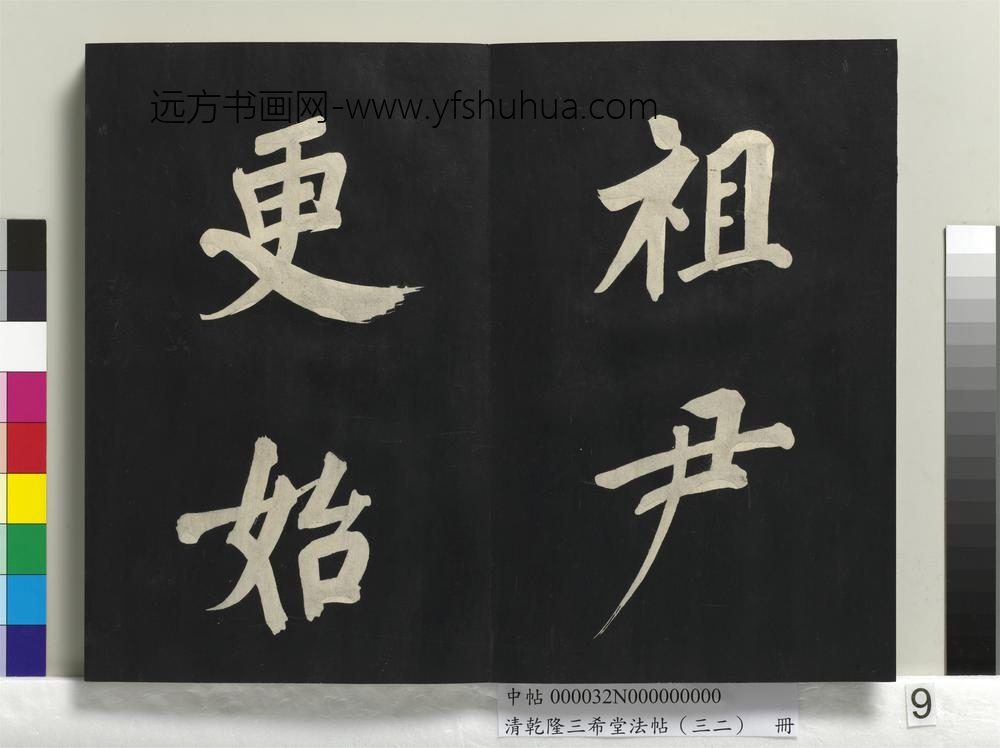 远方书画网-www.yfshuhua.com
祖尹
更始
中帖 000032N000000000
清乾隆三希堂法帖（三二） 冊
9